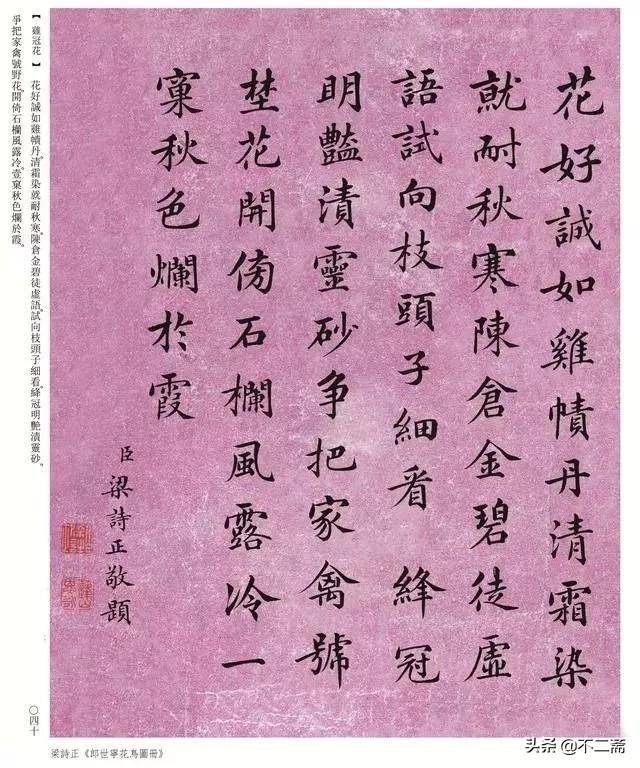 花好誠如雞幘丹清霜染
就耐秋寒陳倉金碧徒虛
語試向枝頭子細看 絳冠
明豔漬靈砂争把家禽號
埜花開傍石欄風露冷一
窠秋色爛於霞
臣梁詩正敬題
【雞冠花】 花好誠如雞幘丹。清霜染就耐秋寒。陳倉金碧徒虛語。試向枝頭子細看。絳冠明艷漬靈砂。
爭把家禽號野花。開倚石欄風露冷。壹窠秋色爛於霞。
〇四十
梁詩正《郎世寧花鳥圖冊》
头条 @不二斋